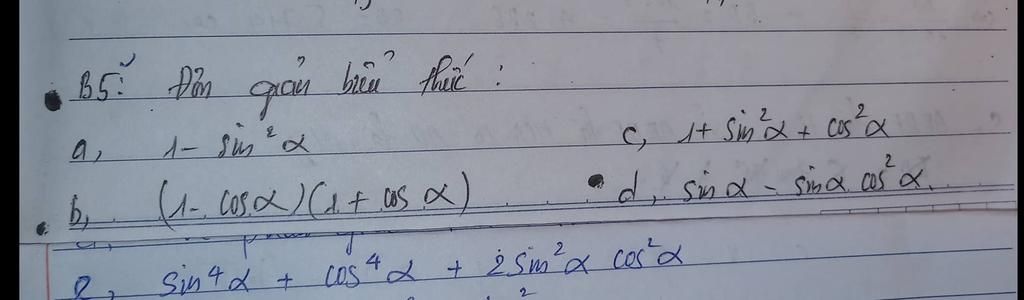 B5: Đơn giản biểu thức:
a, 1 - sin²α
c, 1 + sin²α + cos²α
b, (1 - cosα)(1 + cos α)
d, sinα - sinα cos²α.
e, sin⁴α + cos⁴α + 2sin²α cos²α